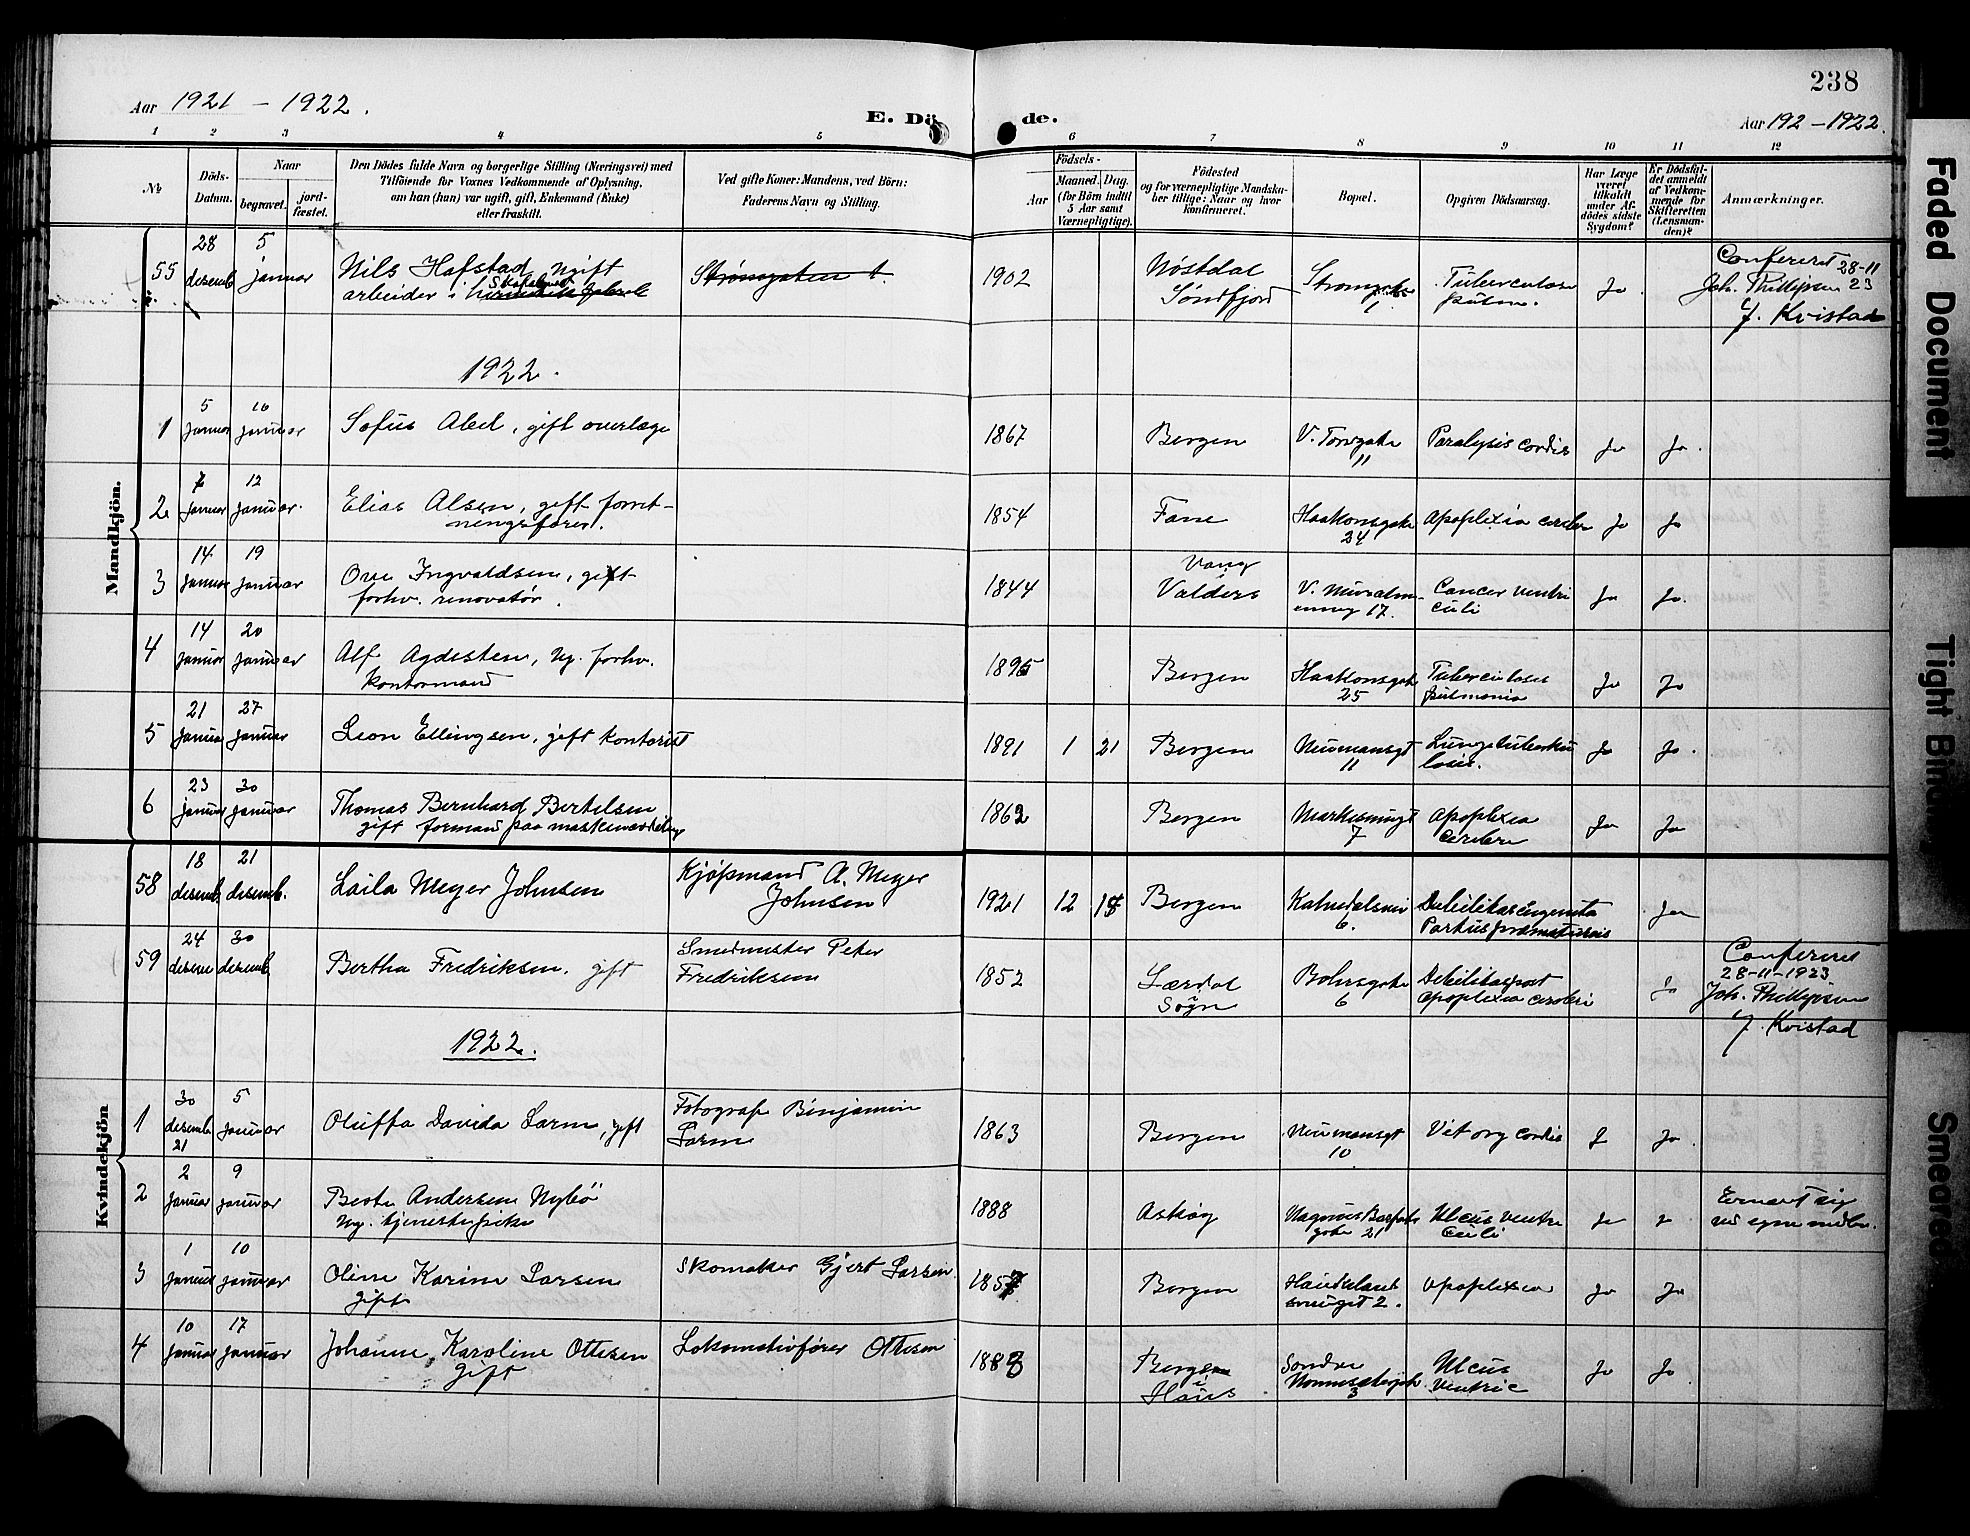 238
Aar 1921 - 1922.
E. Dö de.
Aar 192 - 1922.
1 2 3 4 5 6 7 8 9 10 11 12
№
Döds-Datum.
Naar
begravet.
jord-fæstet.
Den Dödes fulde Navn og borgerlige Stilling (Næringsvei) med
Tilföiende for Voxnes Vedkommende af Oplysning,
om han (hun) var ugift, gift, Enkemand (Enke)
eller fraskilt.
Ved gifte Koner: Mandens, ved Börn:
Faderens Navn og Stilling.
Födsels-
Aar
Maaned. Dag.
(for Börn indtil
5 Aar samt
Værnepligtige).
Födested
og for værnepligtige Mandska-
ber tillige: Naar og hvor
konfirmeret.
Bopæl.
Opgiven Dödsaarsag.
Har Læge
været
tilkaldt
under Af-
dödes sidste
Sygdom?
Er Dödsfal-
det anmeldt
af Vedkom-
mende for
Skifteretten
(Lensman-
den)?
Anmærkninger.
Mandkjön.
55 28 desemb 5 januar Nils Hafstad, ugift
arbeider i
Strømgaten 1.
1902 Nøstdal
Søndfjord
Tuberculose
pulm.
Ja
Confereret 28-11
23
Joh. Phillipsen
J. Kvistad
1922.
1 5 januar 10 januar Sofus Abel, gift overlæge 1867 Bergen V. Torvgate
11 Paralysis cordis Ja Ja
2 7 januar 12 januar. Elias Alsen, gift forret-
ningsfører. 1854 Fane Haakonsgate
24 Apoplexia cerebri Ja Ja
3 14 januar 19 januar Ove Ingvaldsen, gift
forhv. renovatør. 1844 Vang
Valders V. Muralm-
enning 17. Cancer ventri
culi Ja Ja.
4 14 januar 20 januar Alf Agdesten, ug. forhv.
kontormand 1895 Bergen Haakonsgate
25 Tuberculosis
pulmonia Ja Ja
5 21 januar 27 januar Leon Ellingsen, gift kontorist 1891 1 21 Bergen Neumansgt
11 Lungetuberku
losis. Ja Ja.
6 23 januar 30 januar Thomas Bernhard Bertelsen
gift formand paa 1862 Bergen
7 Apoplexia
cerebri Ja Ja
Kvindekjön
58 18 desemb. 21 desemb. Laila Meyer Johnsen Kjøpmand A. Meyer
Johnsen 1921 12 18 Bergen Kalvedalsvei
6. Debilitas congenita
Partus præmaturus Jaa
59 24 desem 30 desemb, Bertha Fredriksen. gift Smedmester Peter
Fredriksen 1852 Lærdal
Sogn
6 Debilitas post
apoplexia cerebri Ja
Confereret
28-11-1923
Joh. Phillipsen
J. Kvistad
1922.
1 30 desemb 21 5 januar Oluffa Davida Larm, gift Fotograf Binjamin
Larm 1863 Bergen Neumansgt
10 Vit org cordis J Ja.
2 2 januar 9 januar Berte Andersen Nybö
ug. tjenestepike 1888 Askøy Magnus Barfots
gate 21 Ulcus ventri
culi Ja
Ernært sig
ved egne midler.
3 1 januar 10 januar Oline Karine Larsen
gift Skomaker Gjert Larsen. 1857 Bergen Haukeland
2. Apoplexia Ja Ja
4 10 januar 17 januar Johanne Karoline Ottesen
gift Lokomotivfører Ottesen 1888 Bergen
i
Haus Søndre
3 Ulcus
ventric Ja Ja
Faded Document
Tight Bin
Smeared